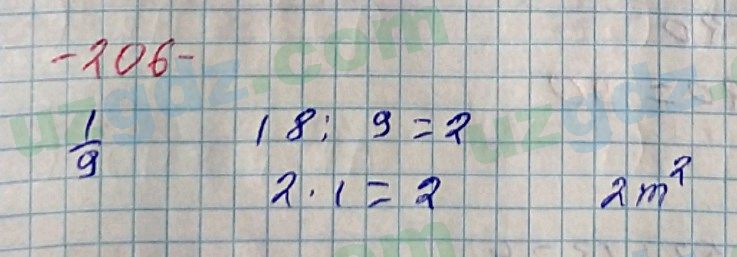 -206-
1/9 18 : 9 = 2
2 · 1 = 2 2m²
uzgdz.com
uzgdz.com